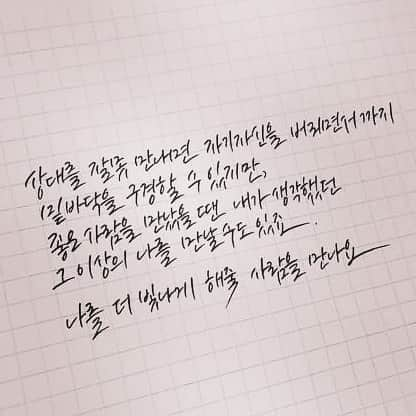 상대를 잘못 만나면 자기자신을 버려면서까지
밑바닥을 구경할 수 있지만,
좋은 사람을 만났을 땐 내가 생각했던
그 이상의 나를 만날 수도 있죠.
나를 더 빛나게 해줄 사람을 만나요